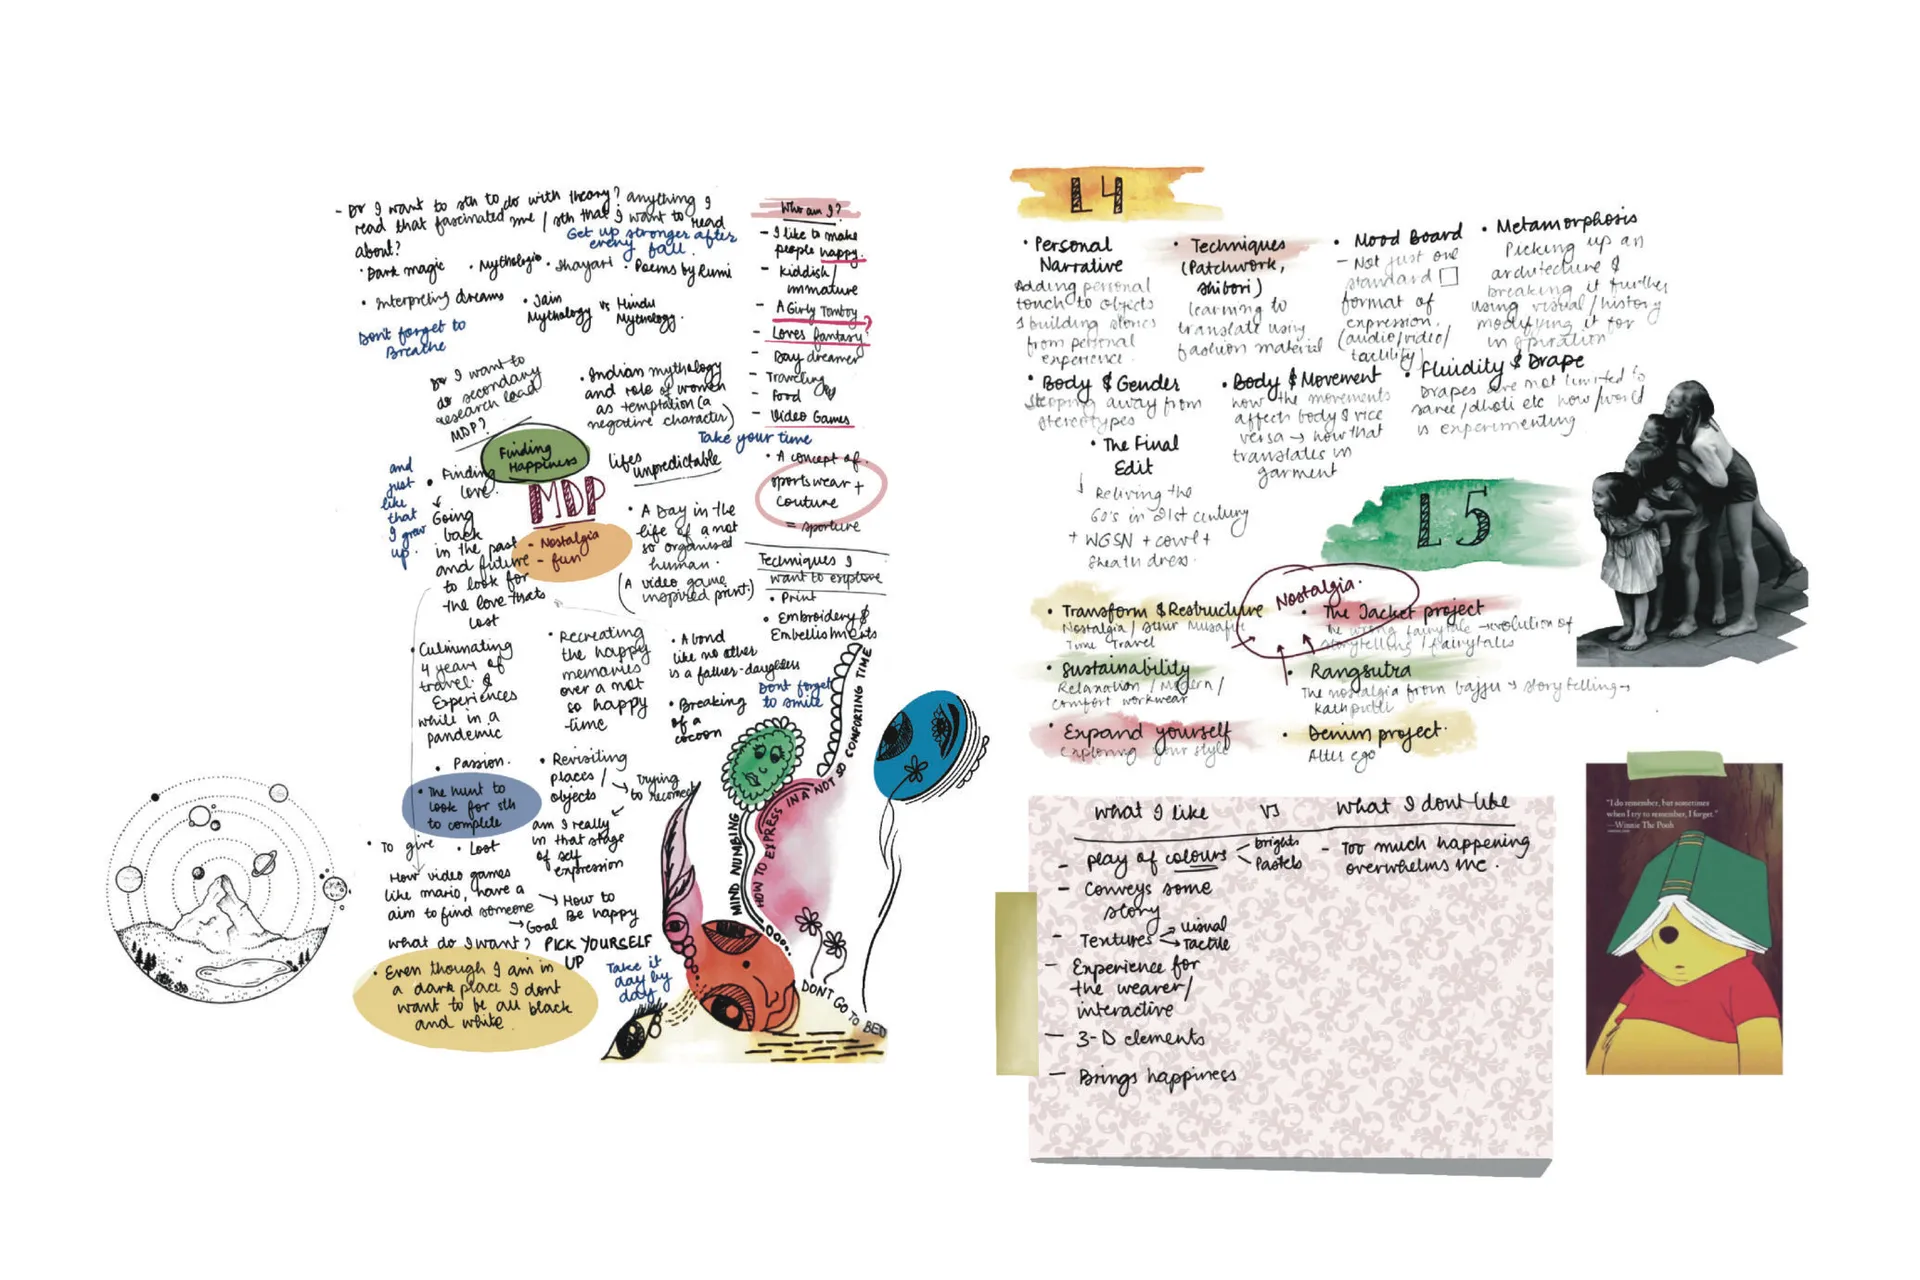 - Do I want to sth to do with theory? anything I
read that fascinated me / sth that I want to read
about?
Get up stronger after
every fall.
• Dark magic • Mythologio • Shayari • Poems by Rumi
• Interpreting dreams
• Jain Mythology vs Hindu Mythology.
Don't forget to
Breathe
Do I want to
do secondary
research lead
MDP?
• Indian mythology
and role of women
as temptation (a
negative character)
Take your time
Finding
Happiness
lifes
unpredictable
MDP
- Nostalgia
- fun
and
just
like
that
I grow
up.
• Finding
love.
Going
back
in the past
and future
to look for
the love thats
lost
• A Day in the
life of a not
so organised
human.
(A video game
inspired print.)
• Culminating
4 years of
travel &
Experiences
while in a
pandemic
• Recreating
the happy
memories
over a not
so happy
time
• A bond
like no other
is a father-daughters
Dont forget
to smile
• Breaking
of a
cocoon
• Passion.
• The hunt to
look for sth
to complete
• To give
• Loot
• Revisiting
places /
objects
Trying
to reconnect
am I really
in that stage
of self
expression
How video games
like mario, have a
aim to find someone
Goal
How to
Be happy
what do I want?
PICK YOURSELF
UP
Take it
day by
day
• Even though I am in
a dark place I dont
want to be all black
and white.
Who am I?
- I like to make
people happy.
- kiddish/
immature
- A Girly Tomboy
- Loves fantasy?
- Day dreamer
- Traveling
- Food
- Video Games
• A concept of
sportswear +
couture
= sporture
Techniques I
want to explore
• Print
• Embroidery &
Embellishments
MIND NUMBING
HOW TO EXPRESS IN A NOT SO COMFORTING TIME
DON'T GO TO BED
L4
• Personal
Narrative
Adding personal
touch to objects
& building stories
from personal
experience.
• Techniques
(Patchwork,
shibori)
learning to
translate using
fashion material
• Mood Board
- Not just one
standard
format of
expression.
(audio/video/
tactility)
• Metamorphosis
Picking up an
architecture &
breaking it further
using visual/history
modifying it for
inspiration
• Body & Gender
Stepping away from
stereotypes
• Body & Movement
how the movements
affect body & vice
versa → how that
translates in
garment
• Fluidity & Drape
Drapes are not limited to
saree/dhoti etc how/world
is experimenting
• The Final
Edit
Reliving the
60's in 21st century
+ WGSN + cowl +
sheath dress.
L5
Nostalgia.
• Transform & Restructure
Nostalgia / Sthir Musafir
Time Travel
• The Jacket project
The wrong fairytale → evolution of
storytelling / fairytales
• Sustainability
Relaxation / Modern /
comfort workwear
• Rangsutra
The nostalgia from bajju → storytelling →
kathputli
• Expand yourself
Exploring your style
• Denim project.
Alter ego
what I like vs what I dont like
- play of colours
brights
Pastels
- Conveys some
story
- Textures
visual
Tactile
- Experience for
the wearer/
interactive
- 3-D elements
- Brings happiness
- Too much happening
overwhelms me.
"I do remember, but sometimes
when I try to remember, I forget."
—Winnie The Pooh